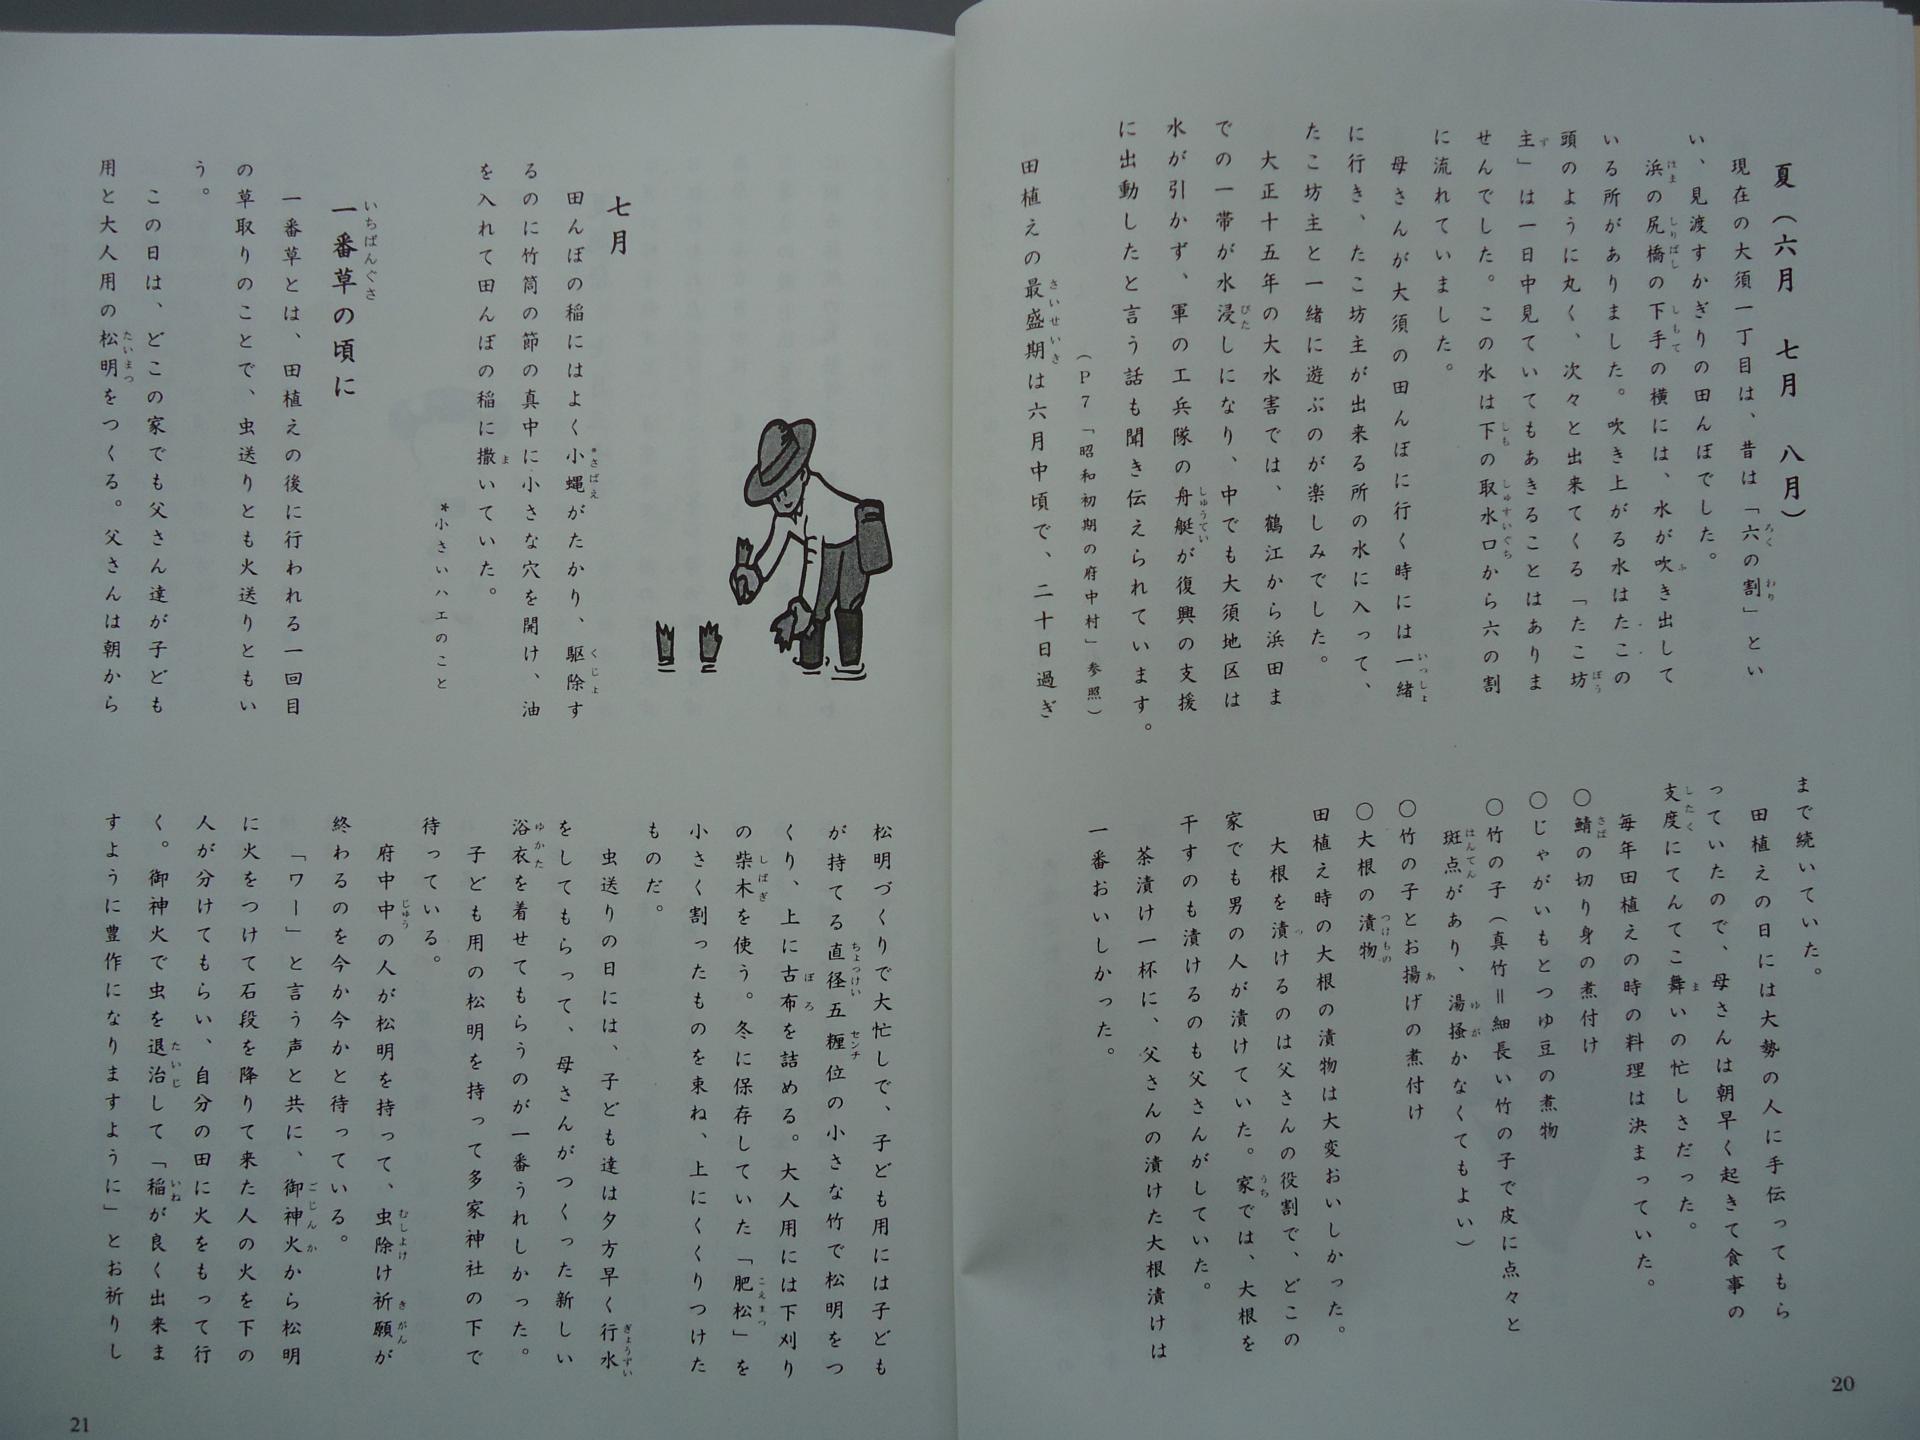 夏（六月　七月　八月）
現在の大須一丁目は、昔は「六の割」とい
い、見渡すかぎりの田んぼでした。
浜の尻橋の下手の横には、水が吹き出して
いる所がありました。吹き上がる水はたこの
頭のように丸く、次々と出来てくる「たこ坊
主」は一日中見ていてもあきることはありま
せんでした。この水は下の取水口から六の割
に流れていました。
母さんが大須の田んぼに行く時には一緒
に行き、たこ坊主が出来る所の水に入って、
たこ坊主と一緒に遊ぶのが楽しみでした。
大正十五年の大水害では、鶴江から浜田ま
での一帯が水浸しになり、中でも大須地区は
水が引かず、軍の工兵隊の舟艇が復興の支援
に出動したと言う話も聞き伝えられています。
（P7「昭和初期の府中村」参照）
田植えの最盛期は六月中頃で、二十日過ぎ
まで続いていた。
田植えの日には大勢の人に手伝ってもら
っていたので、母さんは朝早く起きて食事の
支度にてんてこ舞いの忙しさだった。
毎年田植えの時の料理は決まっていた。
○鯖の切り身の煮付け
○じゃがいもとつゆ豆の煮物
○竹の子（真竹＝細長い竹の子で皮に点々と
斑点があり、湯掻かなくてもよい）
○竹の子とお揚げの煮付け
○大根の漬物
田植え時の大根の漬物は大変おいしかった。
大根を漬けるのは父さんの役割で、どこの
家でも男の人が漬けていた。家では、大根を
干すのも漬けるのも父さんがしていた。
茶漬け一杯に、父さんの漬けた大根漬けは
一番おいしかった。
20
七月
田んぼの稲にはよく小蝿がたかり、駆除す
るのに竹筒の節の真中に小さな穴を開け、油
を入れて田んぼの稲に撒いていた。
*小さいハエのこと
一番草の頃に
一番草とは、田植えの後に行われる一回目
の草取りのことで、虫送りとも火送りともい
う。
この日は、どこの家でも父さん達が子ども
用と大人用の松明をつくる。父さんは朝から
松明づくりで大忙しで、子ども用には子ども
が持てる直径五糎位の小さな竹で松明をつ
くり、上に古布を詰める。大人用には下刈り
の柴木を使う。冬に保存していた「肥松」を
小さく割ったものを束ね、上にくくりつけた
ものだ。
虫送りの日には、子ども達は夕方早く行水
をしてもらって、母さんがつくった新しい
浴衣を着せてもらうのが一番うれしかった。
子ども用の松明を持って多家神社の下で
待っている。
府中中の人が松明を持って、虫除け祈願が
終わるのを今か今かと待っている。
「ワー」と言う声と共に、御神火から松明
に火をつけて石段を降りて来た人の火を下の
人が分けてもらい、自分の田に火をもって行
く。御神火で虫を退治して「稲が良く出来ま
すように豊作になりますように」とお祈りし
21